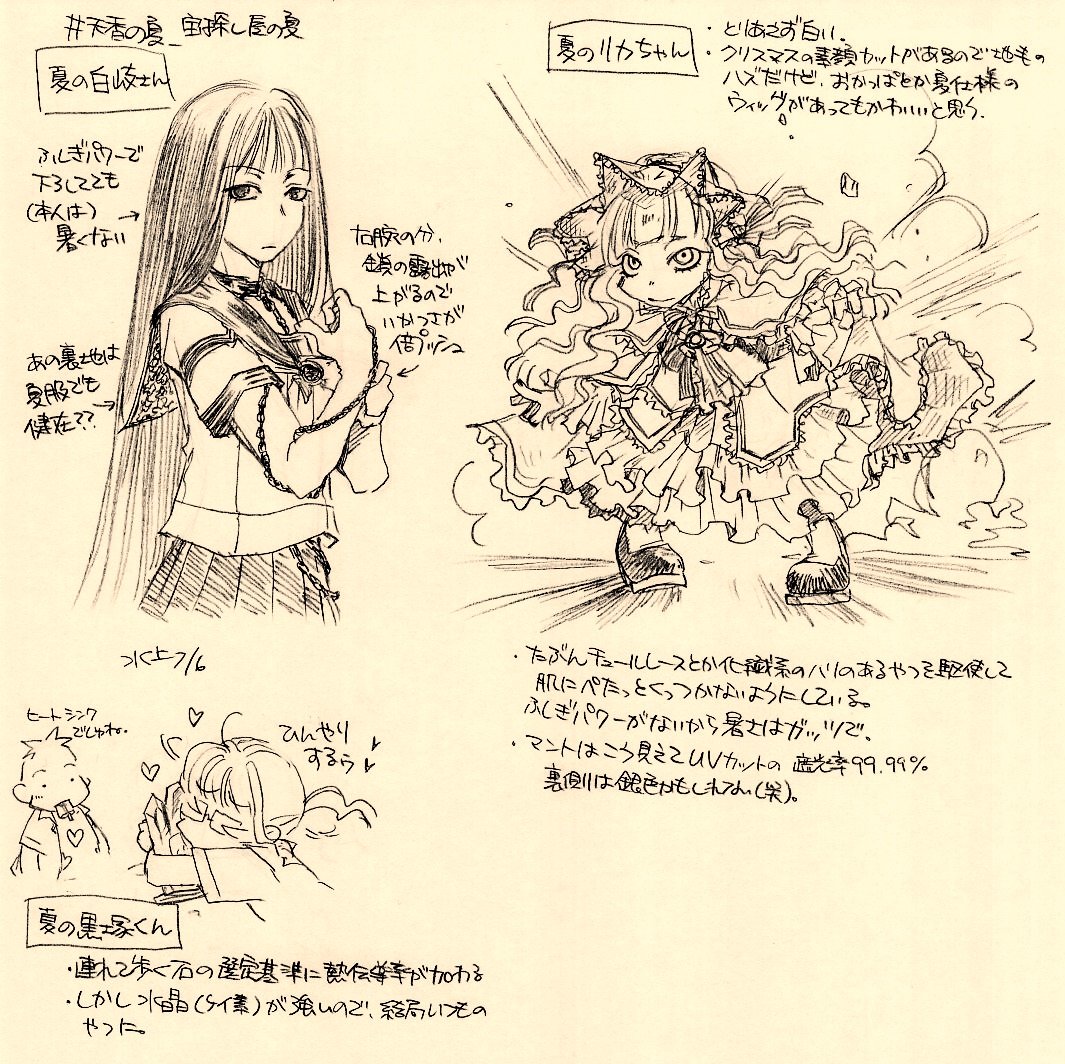 #天香の夏_宝探し屋の夏
夏の白岐さん
ふしぎパワーで
下ろしてても
(本人は)
暑くない
右腕の方、
鎖の露出が
上がるので
いかつさが
倍プッシュ
あの裏地は
夏服でも
健在??
夏のリカちゃん
・とりあえず白い.
・クリスマスの素顔カットがあるので地毛の
ハズだけど、おかっぱとか夏仕様の
ウィッグがあってもかわいいと思う.
・たぶんチュールレースとか化繊系のハリのあるやつを駆使して
肌にぺたっとくっつかないようにしている。
ふしぎパワーがないから暑さはガッツで。
・マントはこう見えてUVカットの遮光率99.99%
裏側は銀色かもしれない(笑)。
ヒートシンク
でしゅね。
ひんやり
するぅ
夏の黒塚くん
・連れて歩く石の選定基準に熱伝導率が加わる
・しかし水晶(ケイ素)が強いので、結局いつもの
やつに。